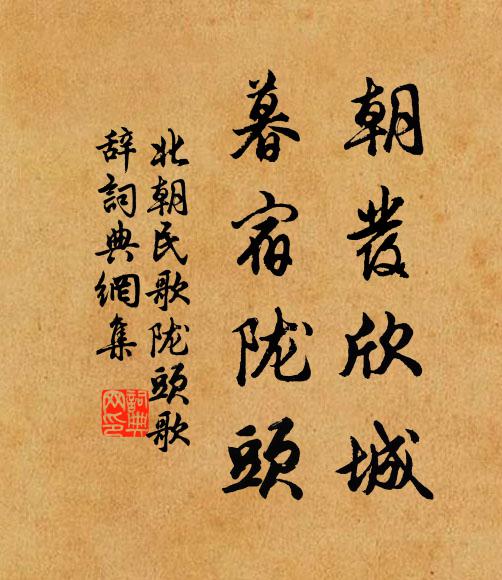 朝發欣城
暮宿陇頭
北朝民歌陇頭歌
辞詞典網集
詞典網印